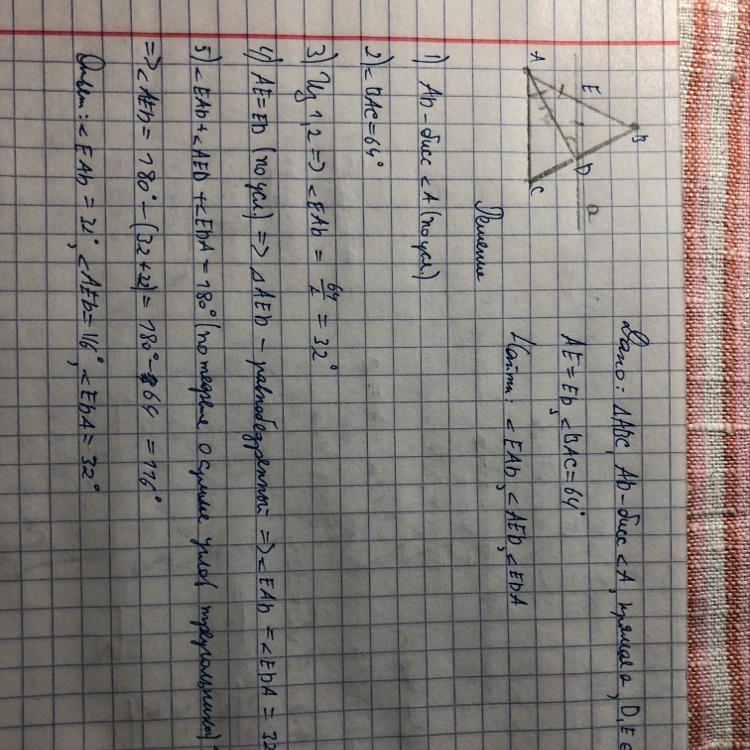 Дано: ΔABC, AD-бисс <A, прямая a, D, E ∈
AE = ED, <BAC = 64°
Найти: <EAD, <AED, <EDA
A
E
B
D
C
a
Решение
1) AD - бисс <A (по усл.)
2) <BAC = 64°
3) Из 1, 2 => <EAD = 64/2 = 32°
4) AE = ED (по усл.) => ΔAED - равнобедренный => <EAD = <EDA = 32
5) <EAD + <AED + <EDA = 180° (по теореме о сумме углов треугольника)
=> <AED = 180° - (32 + 32) = 180° - 64 = 116°
Ответ: <EAD = 32°, <AED = 116°, <EDA = 32°